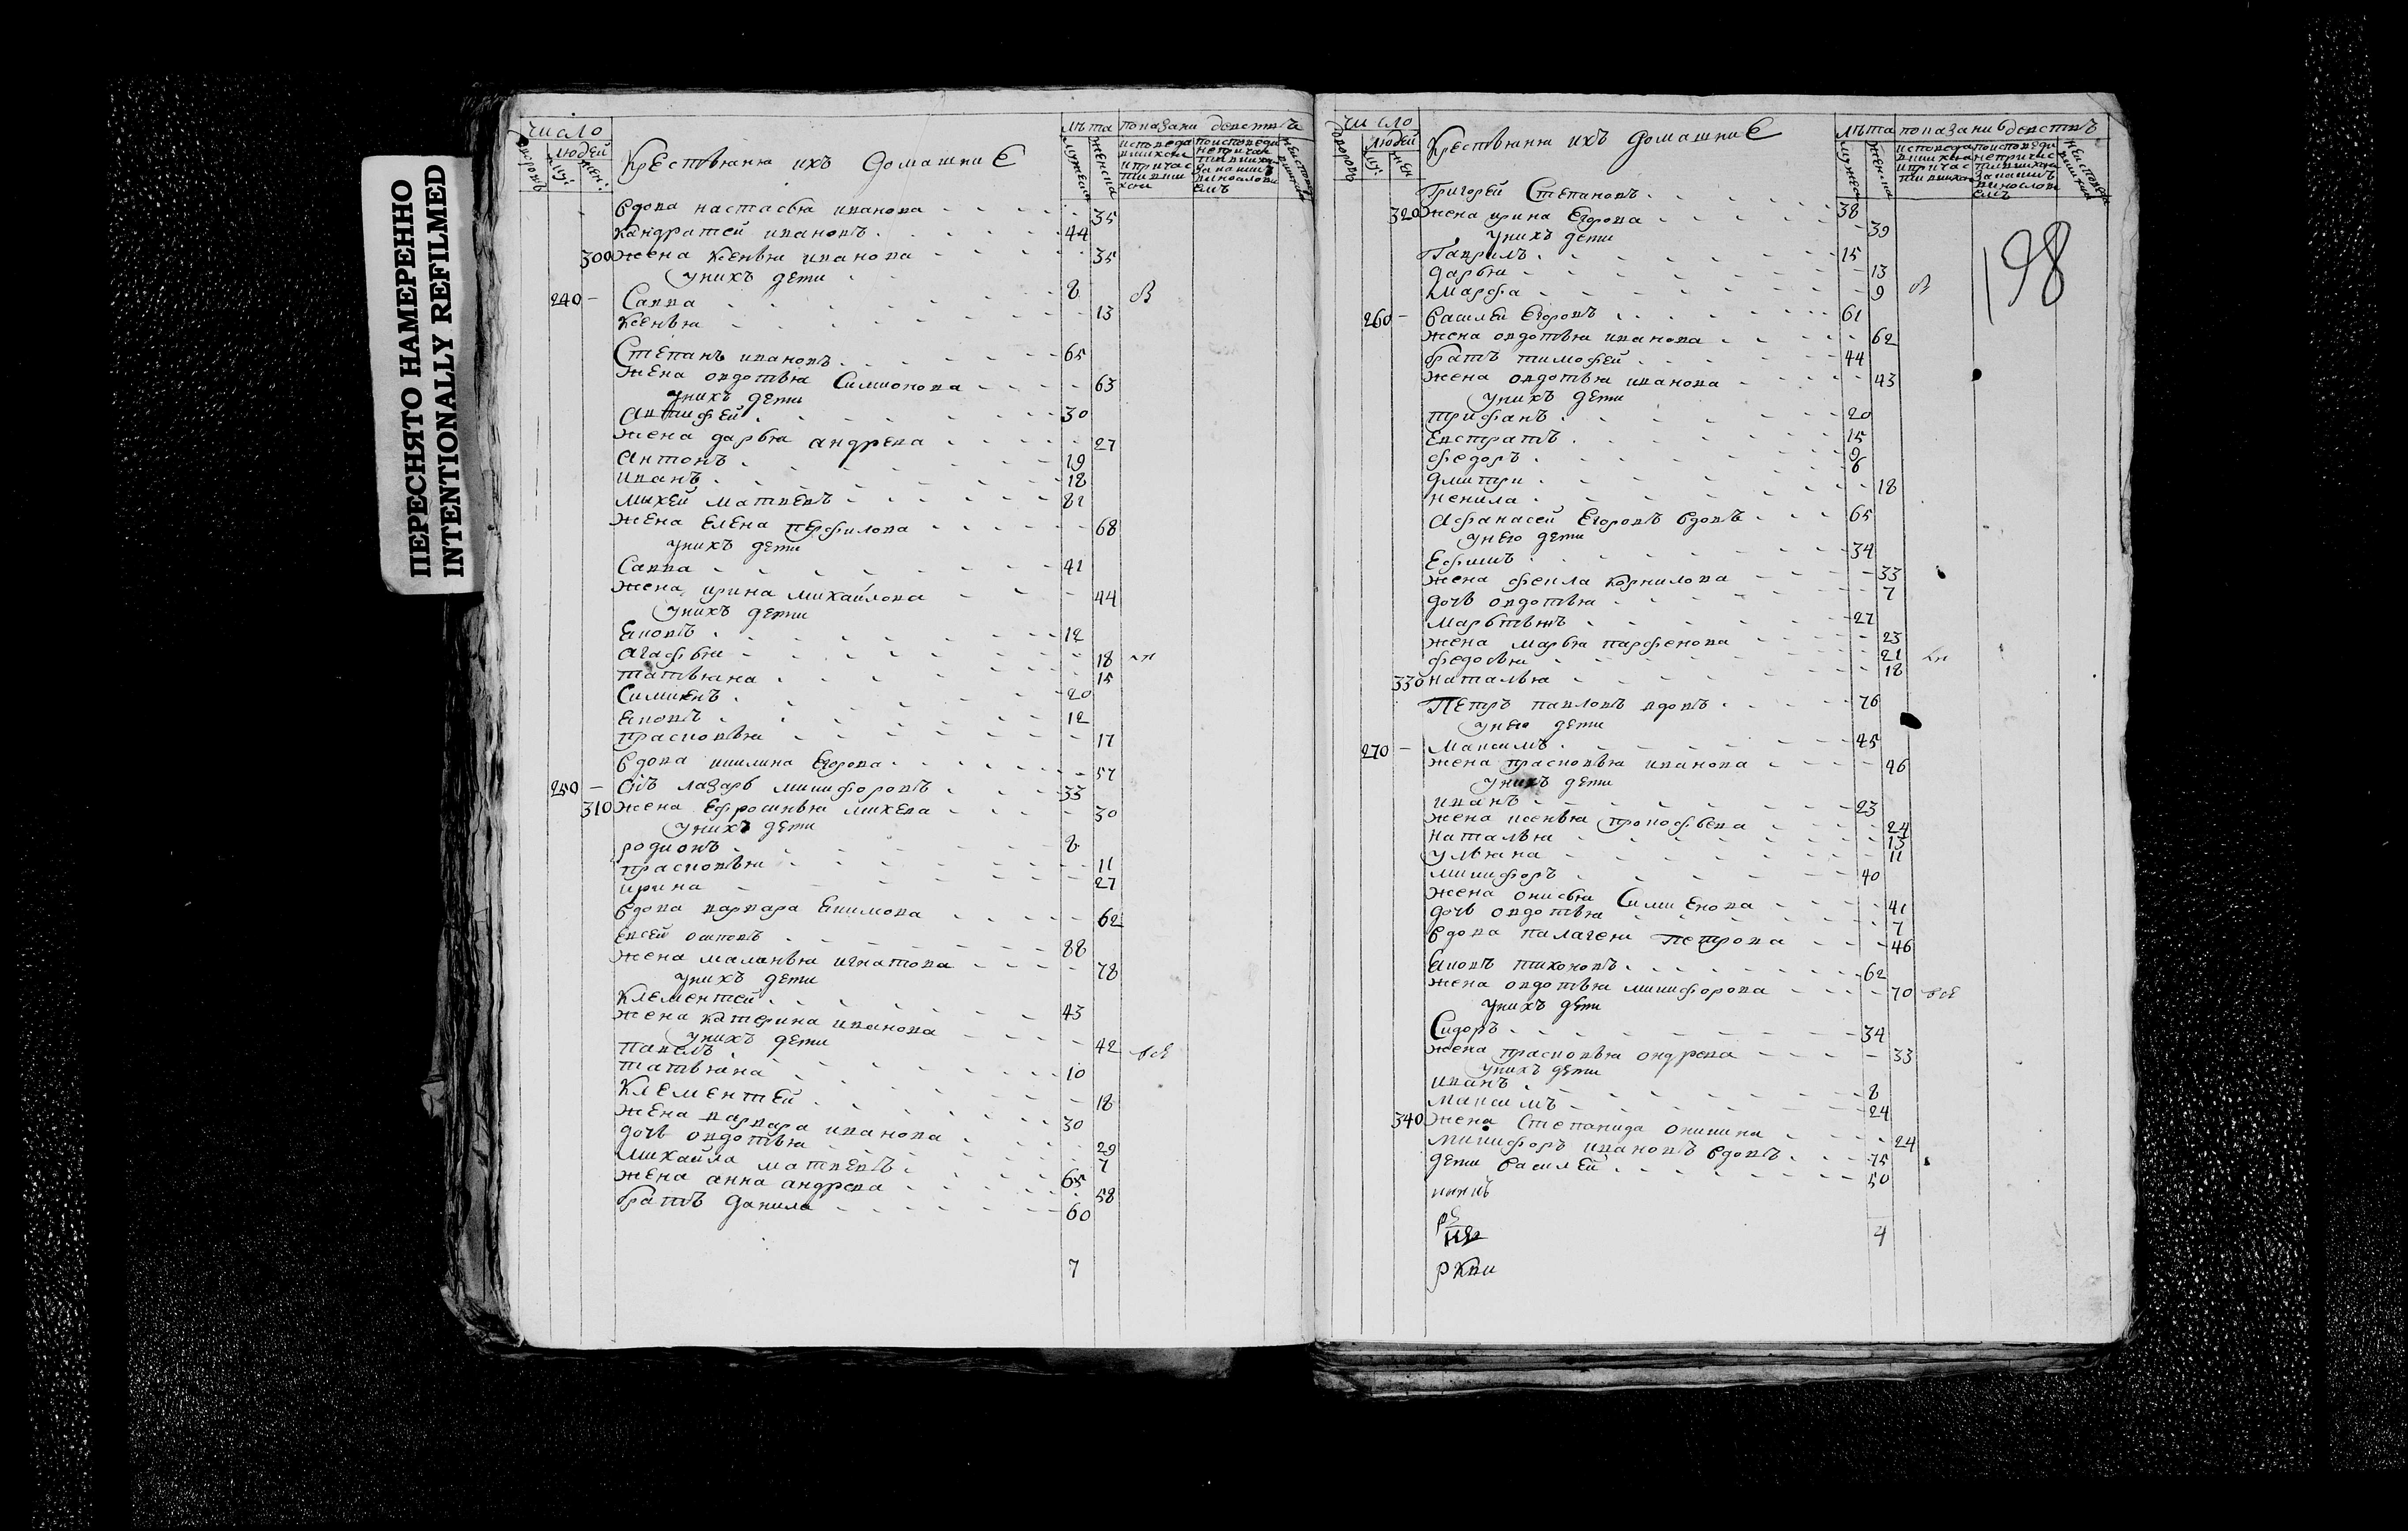 ПЕРЕСНЯТО НАМЕРЕННО
INTENTIONALLY REFILMED
число
людей
дворовъ
муж
жен
Крестьяня ихъ домашние
лѣта
мужеска
женска
показани действъ
Вдова настасья иванова 35
Кандратей ивановъ 44
300 жена Ксенья иванова 35
у нихъ дети
240 Савва 8
Ксенья 13
Степанъ ивановъ 65
жена овдотья Симионова 63
у нихъ дети
30
жена дарья андрева 27
Антонъ 19
иванъ 18
михей матвевъ 81
жена Елена перфилова 68
у нихъ дети
Савва 41
жена ирина михайлова 44
у нихъ дети
Яковъ 12
агафья 18
татьяна 15
Симиенъ 20
Яковъ 12
прасковья 17
Вдова акилина Егорова 57
250 лазарь микифоровъ 33
310 жена Ефросинья михева 30
у нихъ дети
родионъ 8
прасковья 11
ирина 27
Вдова варвара Екимова 62
Евсей осиповъ 88
жена маланья игнатова 78
у нихъ дети
Клементей 43
жена катерина иванова 42
у нихъ дети
павелъ 10
татьяна 18
Клементей 30
жена варвара иванова 29
дочь овдотья 7
михайла матвевъ 65
жена анна андрева 58
братъ данила 60
7
число
людей
дворовъ
муж
жен
Крестьяня ихъ домашние
лѣта
мужеска
женска
показани действъ
198
Григорей Степановъ 38
320 жена ирина Егорова 39
у нихъ дети
Гаврилъ 15
дарья 13
Марфа 9
260 Василей Егоровъ 61
жена овдотья иванова 62
братъ тимофей 44
жена овдотья иванова 43
у нихъ дети
трифанъ 20
Евстратъ 15
федоръ 9
дмитри 6
ненила 18
Афанасей Егоровъ вдовъ 65
у него дети
Ефимъ 34
жена фекла корнилова 33
дочь овдотья 7
мартынъ 27
жена марья парфенова 23
федосья 21
330 наталья 18
Петръ павловъ вдовъ 76
у него дети
270 максимъ 45
жена прасковья иванова 46
у нихъ дети
иванъ 23
жена ксенья прокофьева 24
наталья 13
ульяна 11
микифоръ 40
жена онисья Симиенова 41
дочь овдотья 7
Вдова палагея Петрова 46
Яковъ тихоновъ 62
жена овдотья микифорова 70
у нихъ дети
Сидоръ 34
жена прасковья ондрева 33
у нихъ дети
иванъ 8
максимъ 24
340 жена Степанида оникина 24
микифоръ ивановъ вдовъ 75
дети василей 50
4